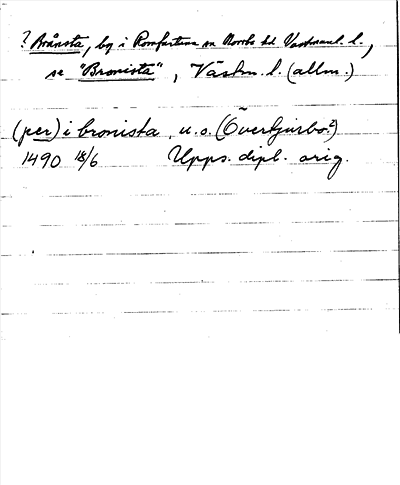 ? Brånsta, by i Romfartuna sn Norrbo hd Västmanl. l.,
se "Bronista", Västm. l. (allm.)
(per) i bronista, u.o. (Övertjurbo?)
1490 18/6 Upps. dipl. orig.